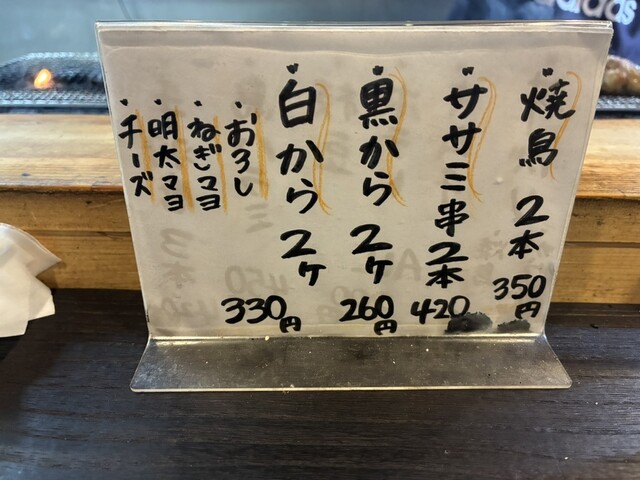 焼鳥 2本 350円
ササミ串 2本 420
黒から 2ケ 260円
白から 2ケ 330円
おろし
ねぎマヨ
明太マヨ
チーズ
adidas